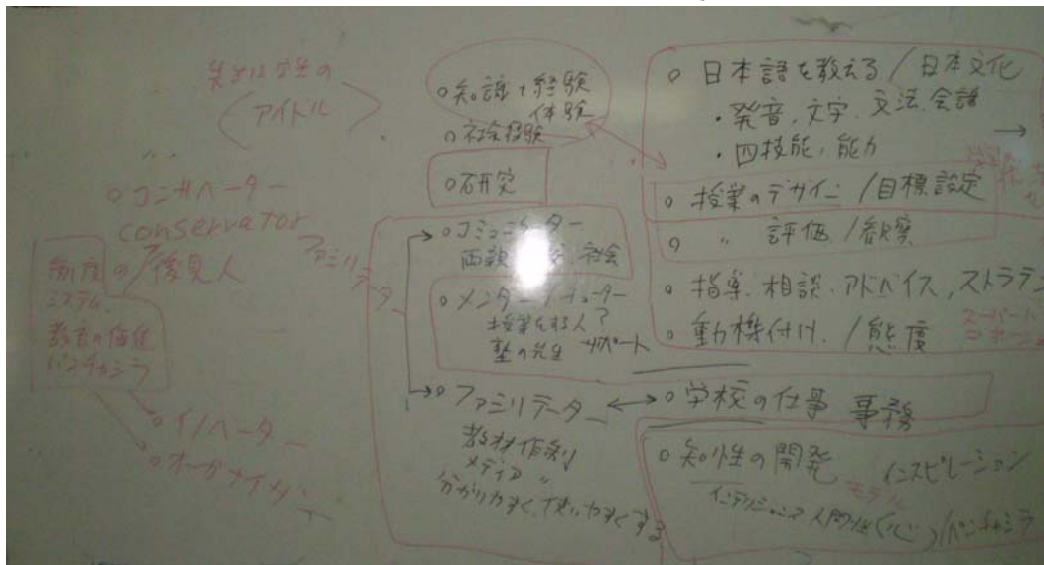 先生は学生の
アイドル
○コンサベーター
conservator
制度の/後見人
システム
教育の価値
パンチャシラ
○イノベーター
○オーガナイザー
○知識、経験
体験
○社会経験
○研究
ファミリテーター
○コミュニケーター
両親 社会
○メンター/チューター
授業をする人?
塾の先生 サポート
○ファミリテーター
教材作成
メディア 〃
分かりやすく、使いやすくする
○日本語を教える/日本文化
・発音、文字、文法、会話
・四技能、能力
○授業のデザイン/目標設定
○ 〃 評価/観察
○指導、相談、アドバイス、ストラテ
○動機付け/態度
スーパー
○学校の仕事 事務
○知性の開発 インスピレーション
モデル
人間性(心)/パンチャシラ